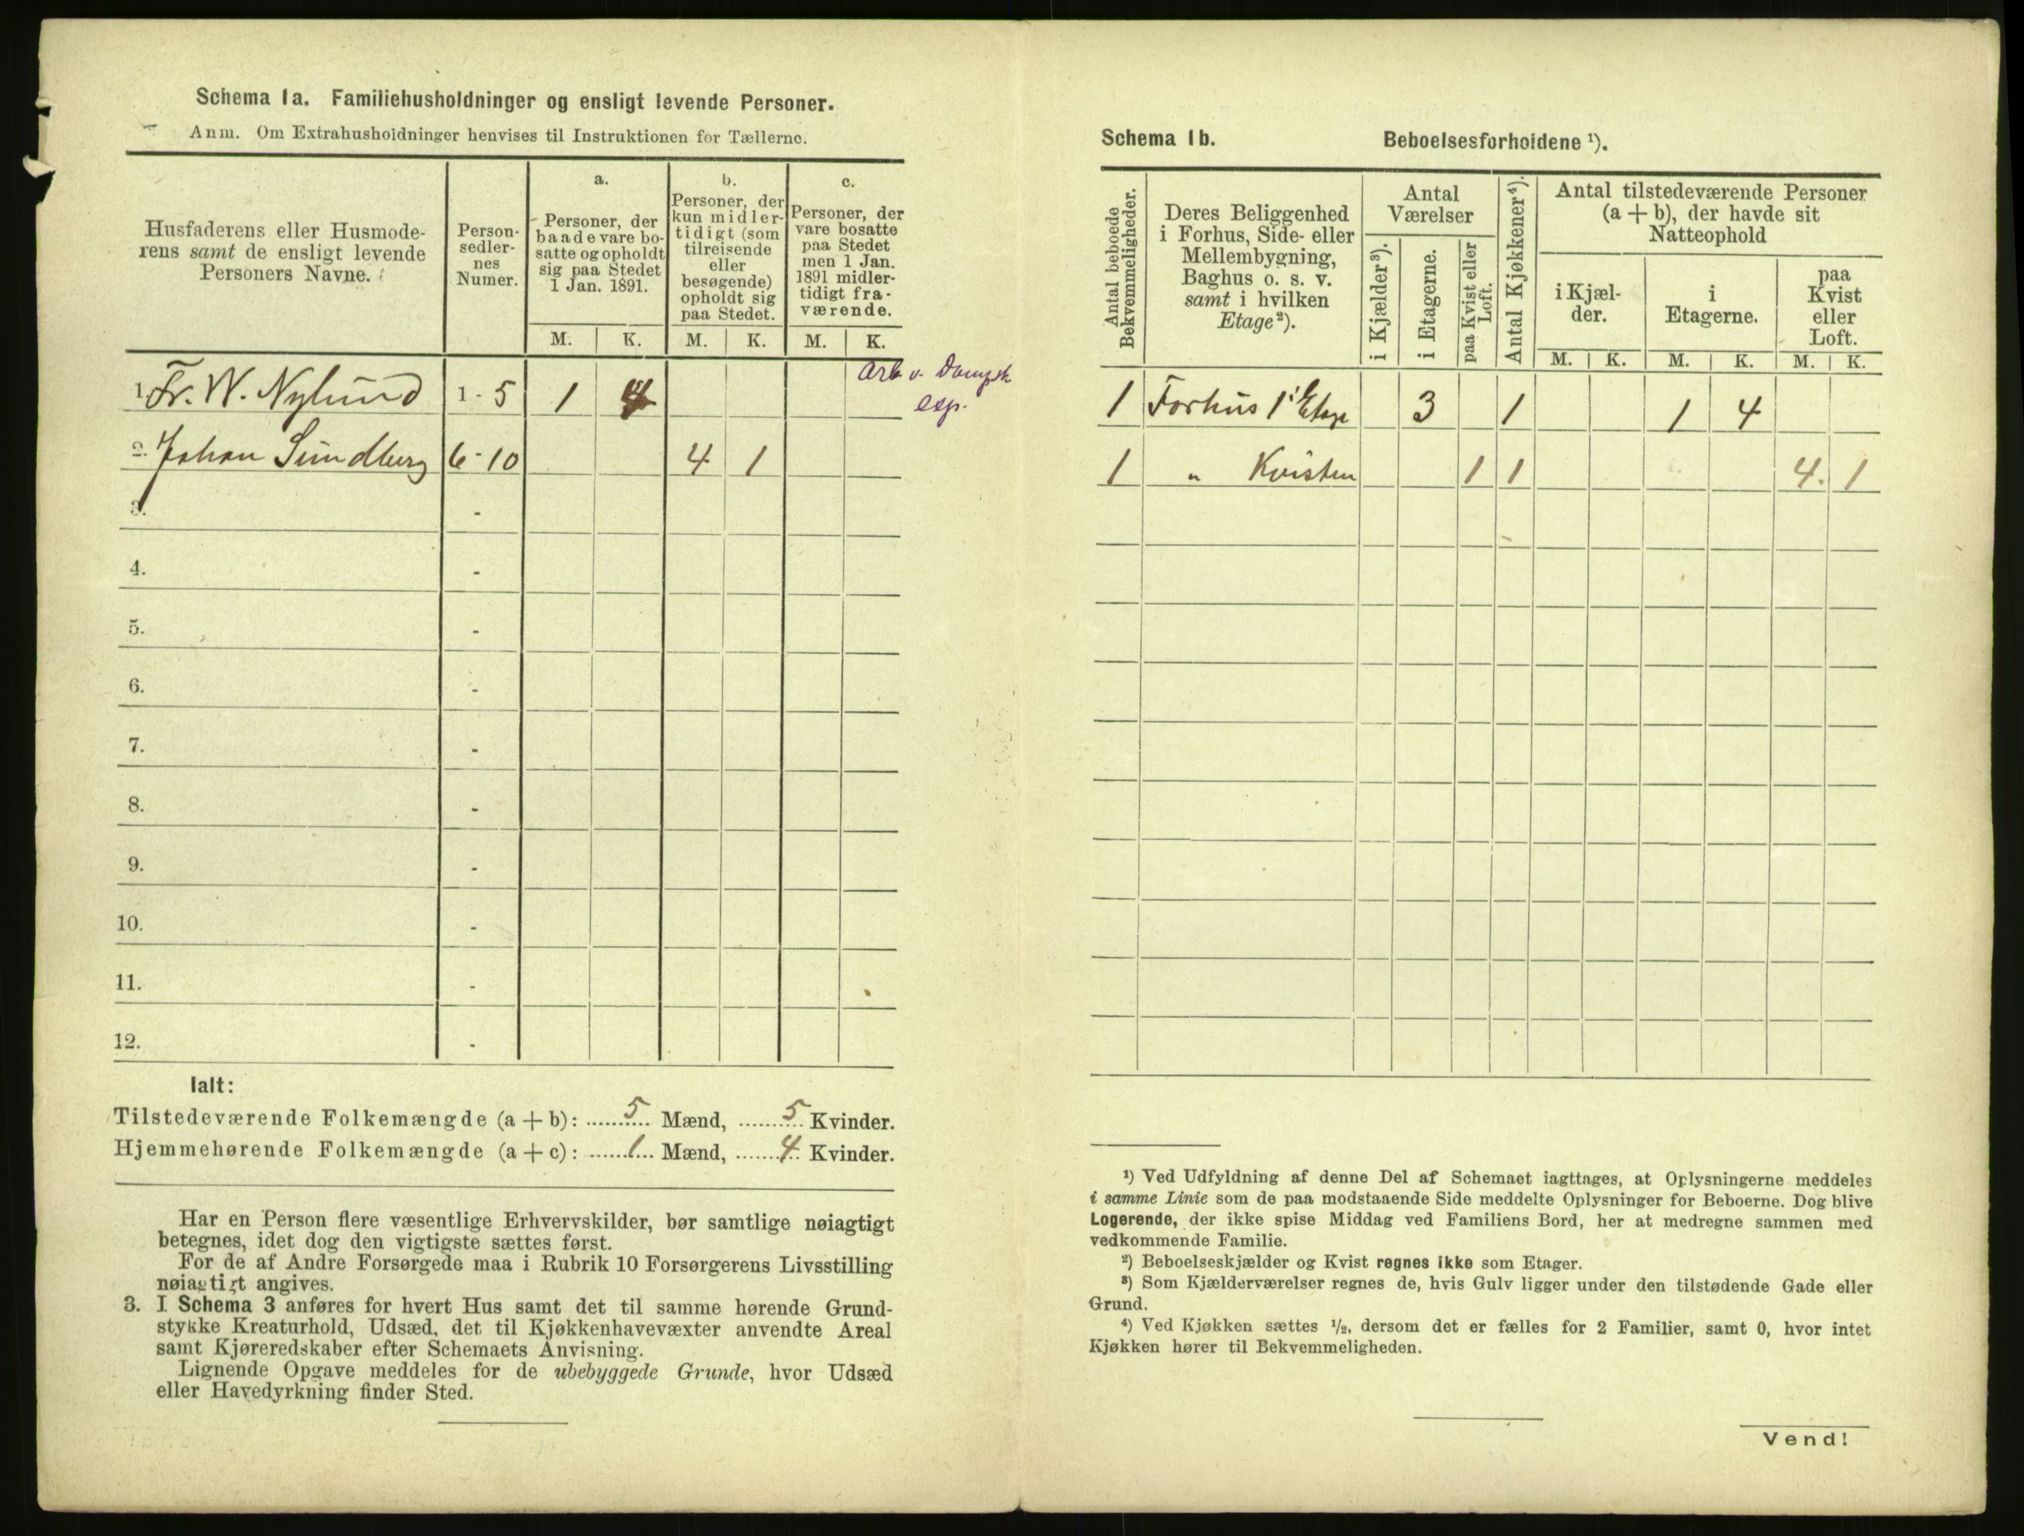 Schema 1a. Familiehusholdninger og ensligt levende Personer.
Anm. Om Extrahusholdninger henvises til Instruktionen for Tællerne.
Husfaderens eller Husmode-
rens samt de ensligt levende
Personers Navne.
Person-
sedler-
nes
Numer.
a.
Personer, der
baade vare bo-
satte og opholdt
sig paa Stedet
1 Jan. 1891.
b.
Personer, der
kun midler-
tidigt (som
tilreisende
eller
besøgende)
opholdt sig
paa Stedet.
c.
Personer, der
vare bosatte
paa Stedet
men 1 Jan.
1891 midler-
tidigt fra-
værende.
M. K. M. K. M. K.
1. Fr. W. Nylund 1 - 5 1 4 Arb v. Dampsk
esp.
2. Johan Sundberg 6 - 10 4 1
3. -
4. -
5. -
6. -
7. -
8. -
9. -
10. -
11. -
12. -
Ialt:
Tilstedeværende Folkemængde (a + b): 5 Mænd, 5 Kvinder.
Hjemmehørende Folkemængde (a + c): 1 Mænd, 4 Kvinder.
Har en Person flere væsentlige Erhvervskilder, bør samtlige nøiagtigt
betegnes, idet dog den vigtigste sættes først.
For de af Andre Forsørgede maa i Rubrik 10 Forsørgerens Livsstilling
nøiagtigt angives.
3. I Schema 3 anføres for hvert Hus samt det til samme hørende Grund-
stykke Kreaturhold, Udsæd, det til Kjøkkenhavevæxter anvendte Areal
samt Kjøreredskaber efter Schemaets Anvisning.
Lignende Opgave meddeles for de ubebyggede Grunde, hvor Udsæd
eller Havedyrkning finder Sted.
Schema 1b. Beboelsesforholdene ¹).
Antal beboede
Bekvemmeligheder.
Deres Beliggenhed
i Forhus, Side- eller
Mellembygning,
Baghus o. s. v.
samt i hvilken
Etage²).
Antal
Værelser
i Kjælder³).
i Etagerne.
paa Kvist eller
Loft.
Antal Kjøkkener⁴).
Antal tilstedeværende Personer
(a + b), der havde sit
Natteophold
i Kjæl-
der.
i
Etagerne.
paa
Kvist
eller
Loft.
M. K. M. K. M. K.
1 Forhus 1' Etage 3 1 1 4
1 " Kvisten 1 1 4. 1
¹) Ved Udfyldning af denne Del af Schemaet iagttages, at Oplysningerne meddeles
i samme Linie som de paa modstaaende Side meddelte Oplysninger for Beboerne. Dog blive
Logerende, der ikke spise Middag ved Familiens Bord, her at medregne sammen med
vedkommende Familie.
²) Beboelseskjælder og Kvist regnes ikke som Etager.
³) Som Kjælderværelser regnes de, hvis Gulv ligger under den tilstødende Gade eller
Grund.
⁴) Ved Kjøkken sættes ½, dersom det er fælles for 2 Familier, samt 0, hvor intet
Kjøkken hører til Bekvemmeligheden.
Vend!